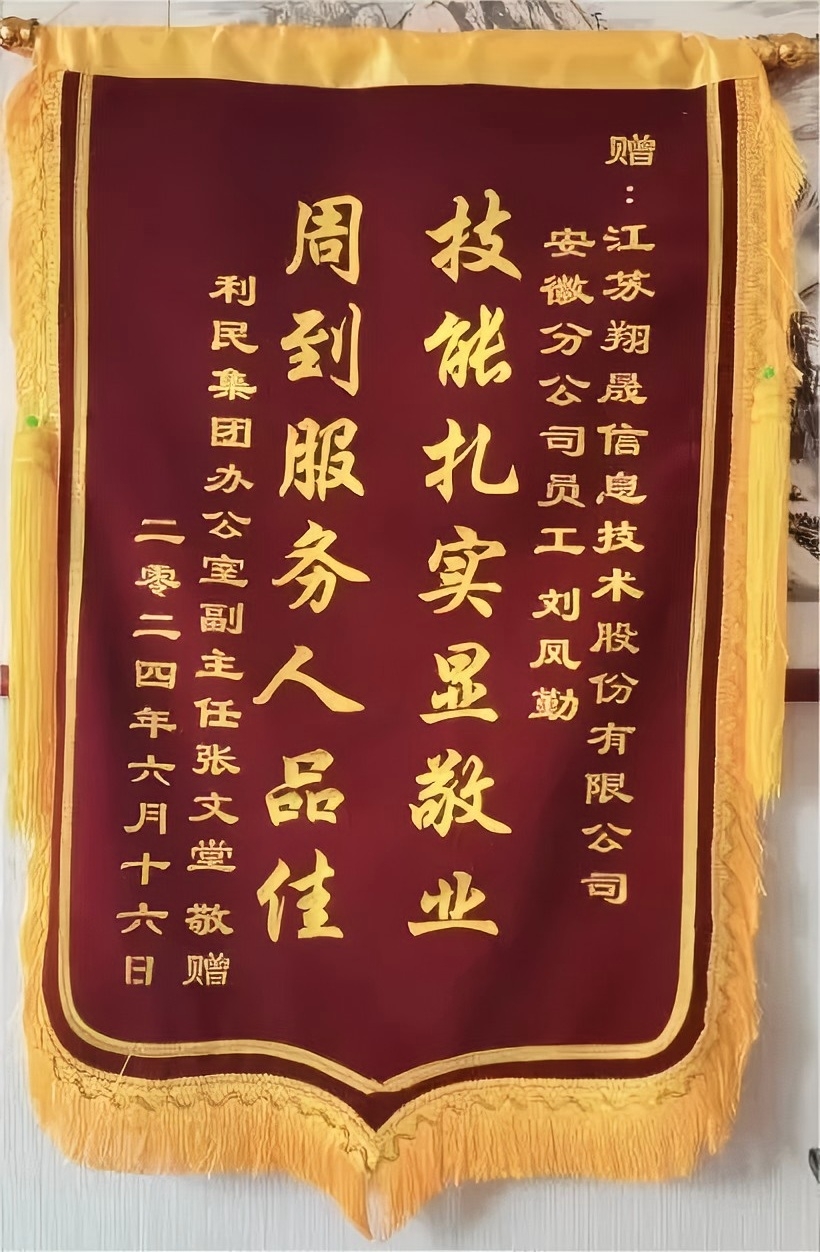 赠：江苏翔晟信息技术股份有限公司
安徽分公司员工 刘凤勤
技能扎实显敬业
周到服务人品佳
利民集团办公室副主任张文堂 敬赠
二零二四年六月十六日